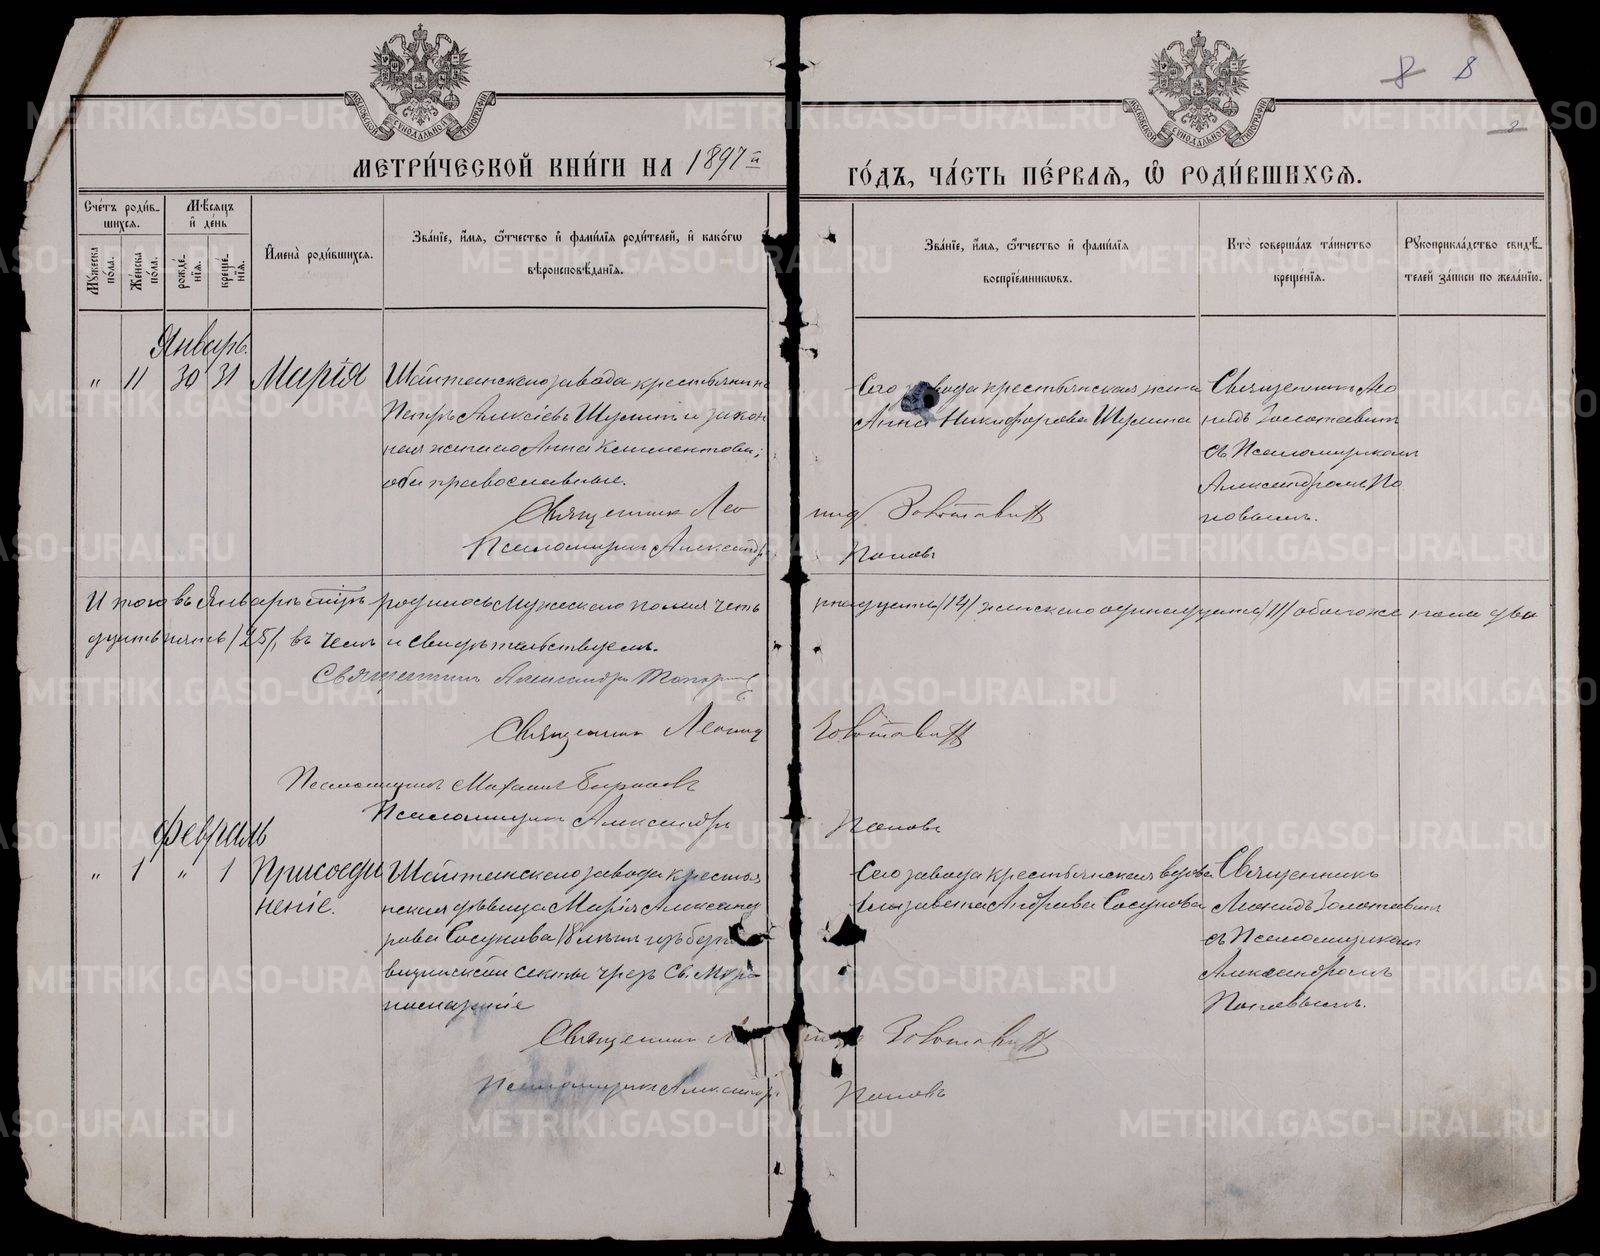 МОСКОВСКОЙ СѴНОДАЛЬНОЙ ТИПОГРАФИИ
МОСКОВСКОЙ СѴНОДАЛЬНОЙ ТИПОГРАФИИ
8 8
МЕТРИ́ЧЕСКОЙ КНИ́ГИ НА 1897й
ГО́ДЪ, ЧА́СТЬ ПЕ́РВАЯ, Ѡ҆ РОДИ́ВШИХСЯ.
Сче́тъ роди́вшихся.
Мѣ́сяцъ и҆ де́нь
Му́жеска по́ла.
Же́нска по́ла.
рожде́нїѧ.
креще́нїѧ.
И҆мена̀ роди́вшихся.
Зва́нїе, и҆́мѧ, ѻ҆́тчество и҆ фами́лїѧ роди́телей, и҆ како́гѡ
вѣроисповѣ́данїѧ.
Зва́нїе, и҆́мѧ, ѻ҆́тчество и҆ фами́лїѧ
воспрїе́мниковъ.
Кто̀ соверша́лъ та́инство
креще́нїѧ.
Рꙋкоприкла́дство свидѣ́телей за́писи по жела́нїю.
Январь.
" 11 30 31 Марія
Шайтанскаго завода крестьянинъ
Петръ Алексѣевъ Шулинъ и закон
ная жена его Анна Климентова;
оба православные.
Сего завода крестьянская жена
Анна Никифорова Шулина
Священникъ Лео
нидъ Золотавинъ
съ Псаломщикомъ
Александромъ По
повымъ.
Священник Леонид Золотавин
Псаломщик Александр Поповъ
Итого въ Январѣ мѣс. родилось Мужескаго пола четырнадцать /14/ женскаго одиннадцать /11/ обоего же пола два
дцать пять /25/, въ чемъ и свидѣтельствуемъ.
Священникъ Александръ Топорковъ
Священник Леонид Золотавин
Псаломщикъ Михаилъ
Псаломщик Александръ Поповъ
Февраль
" 1 " 1 Присоеди
неніе.
Шайтанскаго завода крестья
нская дѣвица Марія Александ
рова Сосунова 18 лѣтъ изъ
секты чрезъ Св. Мѵро
помазаніе
Сего завода крестьянская вдова
Елизавета Андреева Сосунова
Священникъ
Леонидъ Золотавинъ
съ Псаломщикомъ
Александромъ
Поповымъ.
Священник Золотавин
Псаломщик Александръ Поповъ
METRIKI.GASO-URAL.RU